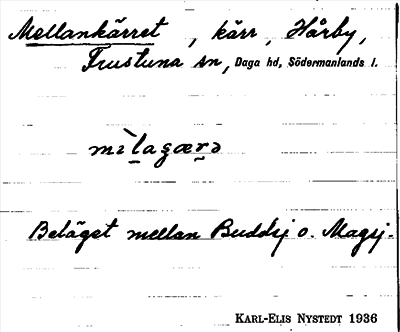 Mellankärret, kärr, Hårby,
Frustuna sn, Daga hd, Södermanlands l.
Beläget mellan Buddsj o. Magsj.
KARL-ELIS NYSTEDT 1936